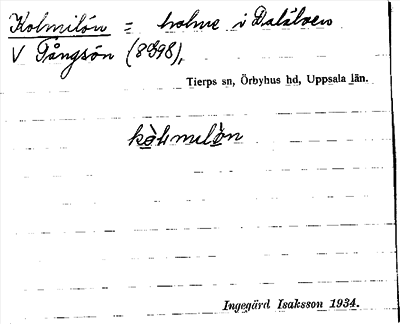 Kolmilón = holme i Dalälven
V Tångsön (8998),
Tierps sn, Örbyhus hd, Uppsala län.
Ingegärd Isaksson 1934.